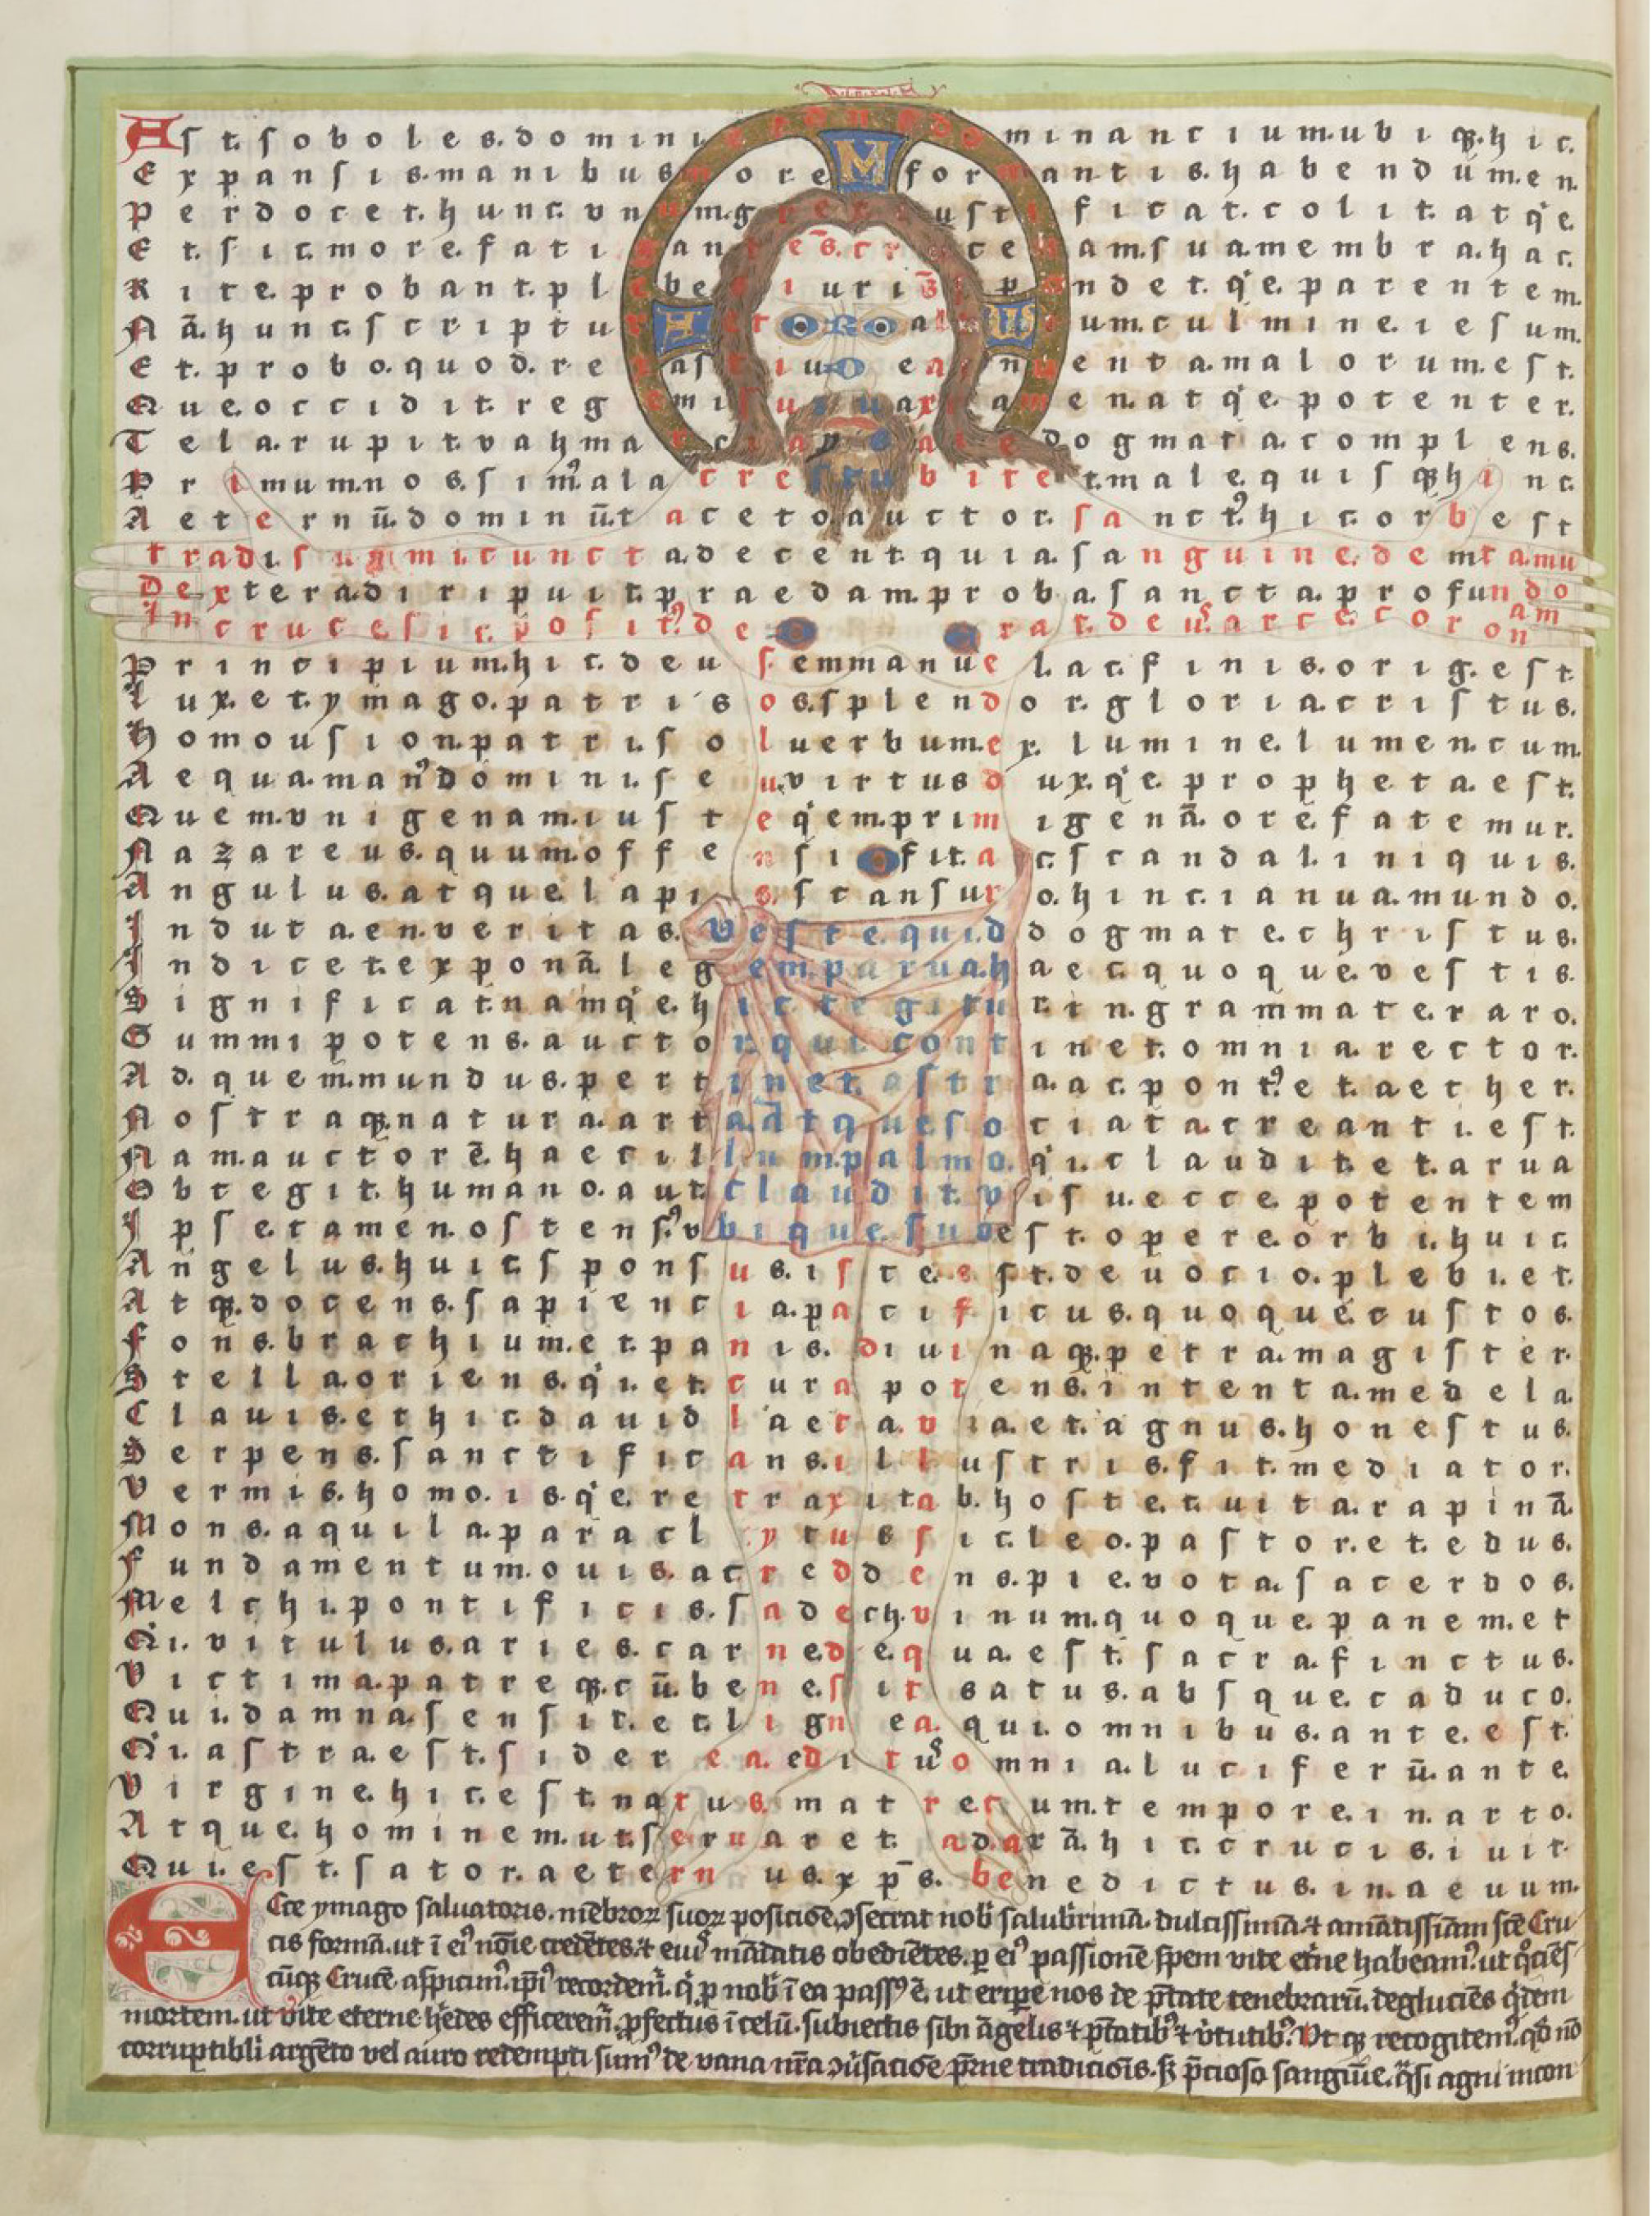 Ast.soboles.domini et dns do minancium.ubi qꝫ.hic.
Expansis.manibus more formantis.habendū.men.
Perdocet.hunc.vnum.g rex iustificat.colit.atqe.
Et.sic.more.fatigantes.cr ce am.sua.membra.hac.
Rite.probant.plebe iuris pandet.qe.parentem.
Nā.hunc.scriptura et al um.culmine.iesum.
Et.probo.quod.re en ta.malorum.est.
Que.occidit.reg en.atqe.potenter.
Tela.rupit.vah ma dogmata.complens.
Primum.nos.simala cre bite t.male.quisqꝫ hinc.
Aeternū.dominū.t aceto.auctor.sanctꝰ.hic.orbe st
tradi summi cuncta.decent.quia.sanguine.de mta.mu
Dextera.diripuit.praedam.proba.sancta.profundo
In cruce sic.positꝰ.de erat.deus.arce.coronam
Principium.hic.deus emmanuel.ac.finis.orig.est.
Lux.et.ymago.patris os.splendor.gloria.cristus.
Homousion.patris.soluerbum.ex lumine.lumen.cum.
Aequa.manꝰ.domini.s euvirtus dux.qe.propheta.est.
Quem.vnigenam.iuste qem.primigenā.ore.fatemur.
Nazareus.quum.offensio fit.ac.scandal.iniquis.
Angulus.atque.lapis.stansuro.hinc.ianua.mundo.
Induta.en.veritas.veste.quid dogmate.christus.
Indicet.exponā.legem.parua.haec.quoque.vestis.
Significat.namqe.hic tegitur in.grammate.raro.
Summipotens.auctor qui continet.omnia.rector.
Ad.quem.mundus.pertinet.astra.ac.pontꝰ.et.aether.
Nostraqꝫ.natura.arta.adtque.sociata.creanti.est.
Nam.auctorē.haec illum.palmo.qi.claudit.et.arua
Obtegit.humano.aut claudit.visu.ecce.potentem
Ipse.tamen.ostensꝰ.vbique.suo est.opere.orbi.huic.
Angelus.huic.sponsus.iste.est.deuocio.plebi.et.
Atqꝫ.docens.sapiencia.pacificus.quoque.custos.
Fons.brachium.et.panis.diuinaqꝫ.petra.magister.
Stella.oriens.qi.et.cura potens.intenta.medela.
Clauis.et.hic.dauid laeta.via.et.agnus.honestus.
Serpens.sanctificans.illustris.fit.mediator.
Vermis.homo.is.qe.retraxit ab.hoste.cuita.rapinā.
Mons.aquila.paraclytus sic.leo.pastor.et.edus.
Fundamentum.ouis.ac redddens.pie.vota.sacerdos.
Melchi.pontificis.sadech.vinum.quoque.panem.et
Qi.vitulus.aries.carne.de.qua.est.sacra.finctus.
Victima.patreqꝫ.cū.bene.sit satus.absque.caduco.
Qui.damna.sensit.et.lignea.qui.omnibus.ante.est.
Qi.astra.est.sidere a.editꝰ omnia.luciferū.ante.
Virgine.hic.est.natus.matre cum.tempore.in.arto.
Atque.hominem.ut.seruaret.ad.arā.hic.crucis.iuit.
Qui.est.sator.aeternus.x p̄s.benedictus.in.aeuum.
Ecce ymago saluatoris.mēbroꝝ suoꝝ posiciōe ↄsecrat nob̄ salubrimā.dulcissimā ⁊ amātissiam sce Cru
cis formā.ut ī eiꝰ nōie credētes ⁊ eiuꝰ mādatis obediētes.per eiꝰ passionē spem vite etne habeamꝰ.ut qͦciēs
cūqꝫ Crucē aspicimꝰ.ipīꝰ recordemꝰ.qi p nob̄ ī ea passꝰ ē.ut eriperet nos de ptāte tenebrarū.degluciēs qidem
mortem.ut vite eterne hedes efficeremꝰ.pfectus ī celū.subiectis sibi āgelis ⁊ ptātibꝰ ⁊ virtutibꝰ.Vt qꝫ recogitemꝰ.qd nō
corruptibli argēto vel auro redempti sumꝰ de vana nrā ↄūsaciōe prne tradiciōis.sꝫ pcioso sanguīe.qͣsi agni incon